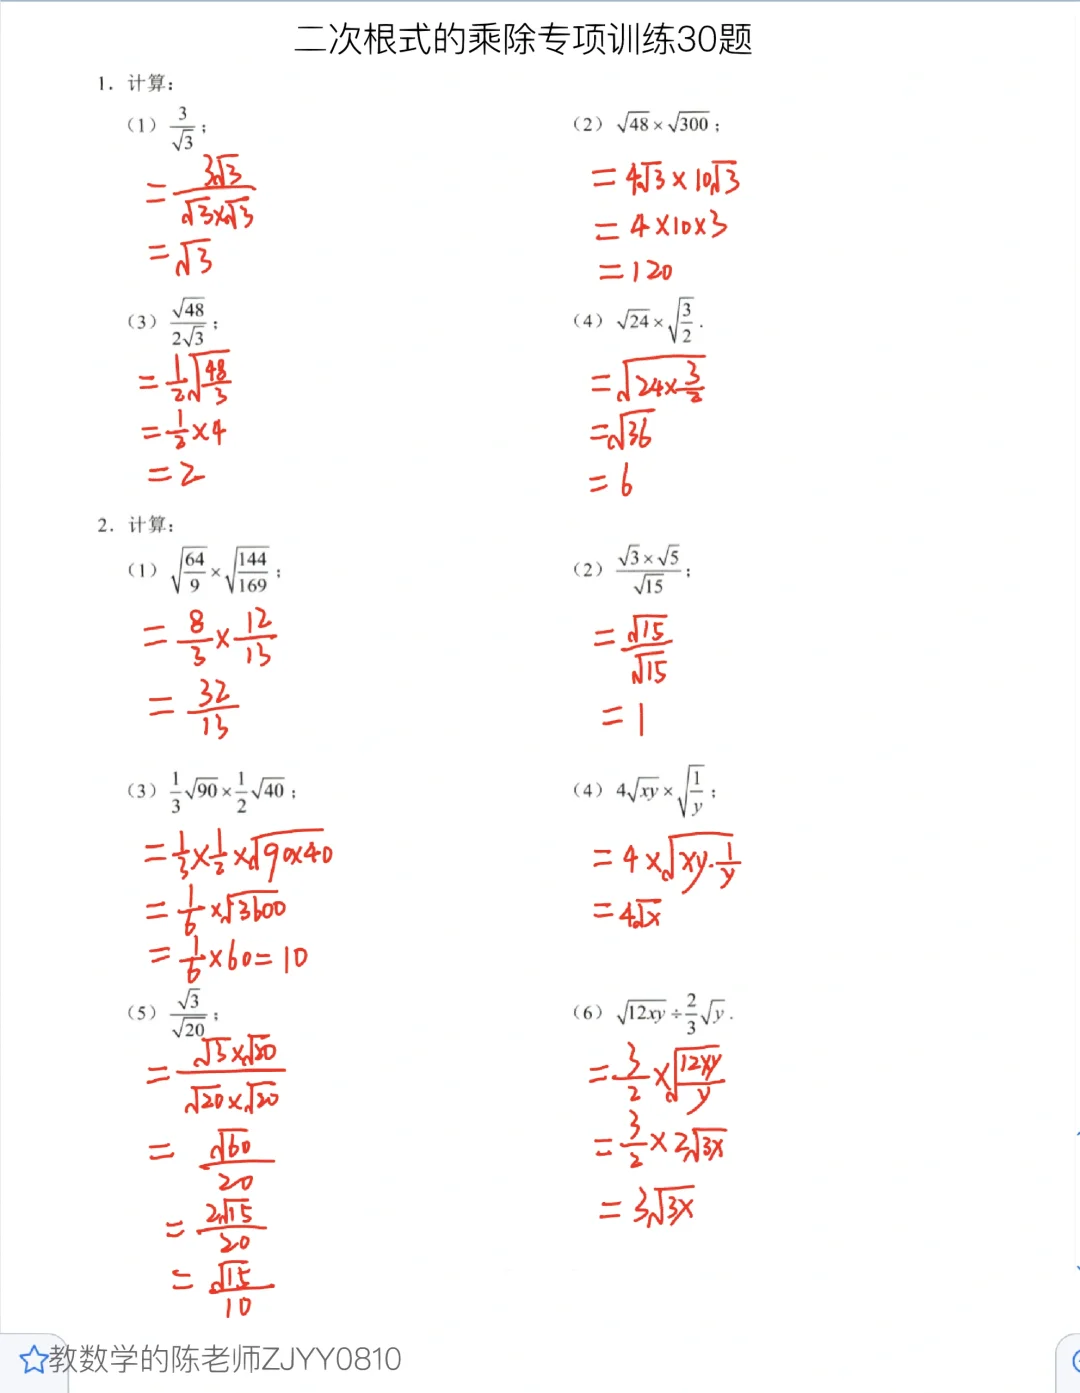 二次根式的乘除专项训练30题
1. 计算:
(1) 3/√3;
= 3√3/(√3×√3)
= √3
(2) √48×√300;
= 4√3×10√3
= 4×10×3
= 120
(3) √48/(2√3);
= 1/2√(48/3)
= 1/2×4
= 2
(4) √24×√(3/2).
= √(24×3/2)
= √36
= 6
2. 计算:
(1) √(64/9)×√(144/169);
= 8/3×12/13
= 32/13
(2) (√3×√5)/√15;
= √15/√15
= 1
(3) 1/3√90×1/2√40;
= 1/3×1/2×√(90×40)
= 1/6×√3600
= 1/6×60=10
(4) 4√xy×√(1/y);
= 4×√(xy·1/y)
= 4√x
(5) √3/√20;
= (√3×√20)/(√20×√20)
= √60/20
= 2√15/20
= √15/10
(6) √12xy÷2/3√y.
= 3/2×√(12xy/y)
= 3/2×2√3x
= 3√3x
教数学的陈老师ZJYY0810